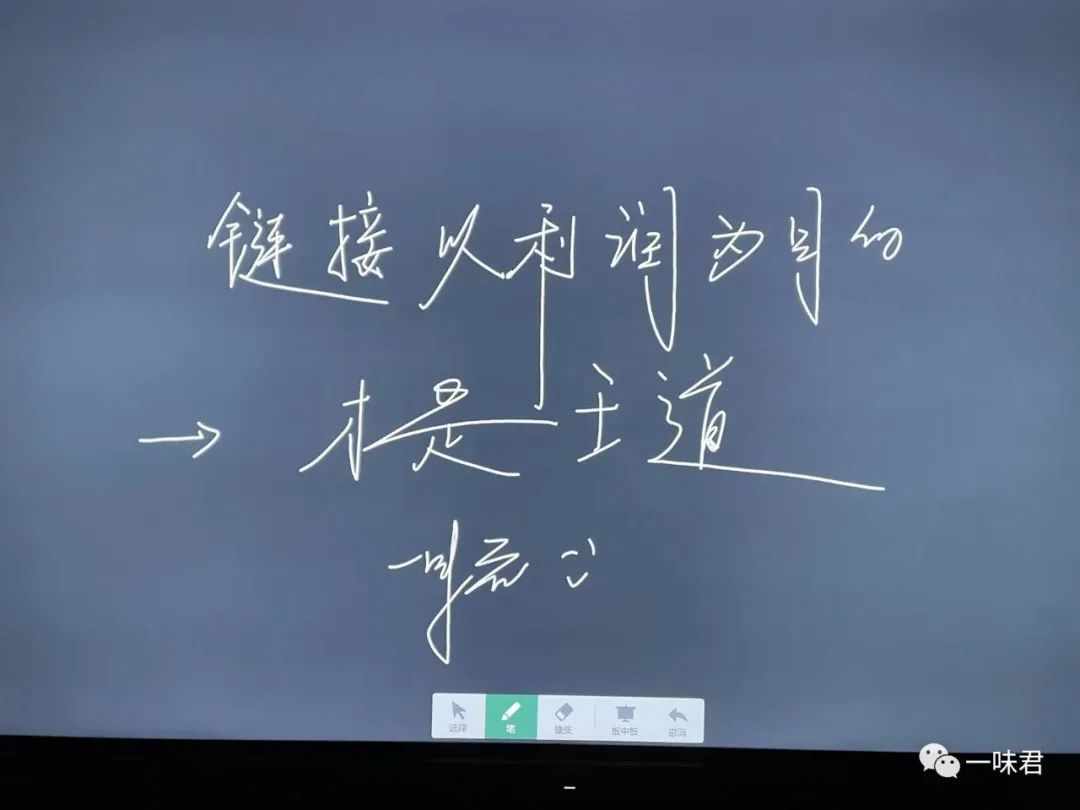 链接以利润为目的
→ 才是王道
选择 笔 擦除 板中板 撤消
一味君